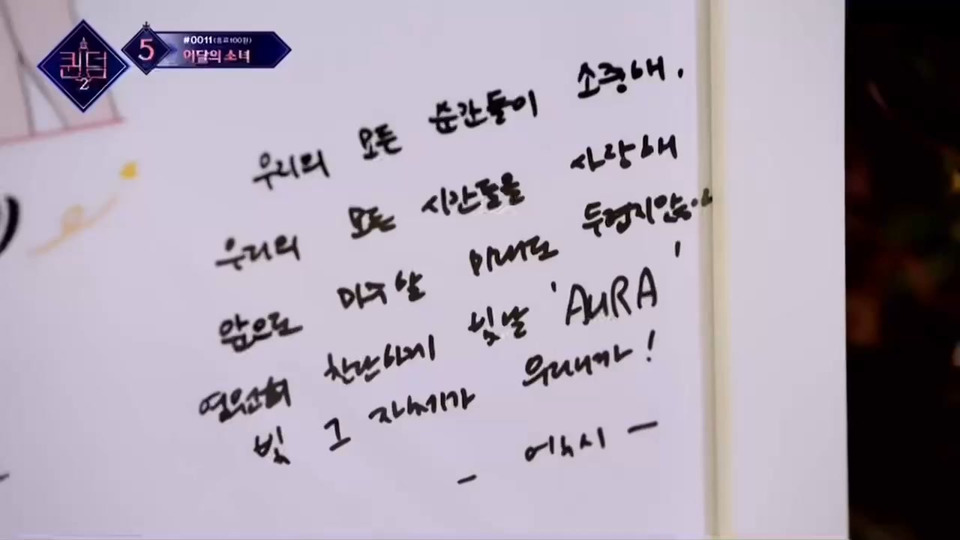 퀸덤
2
5
#0011(음표100원)
이달의 소녀
우리의 모든 순간들이 소중해.
우리의 모든 시간들을 사랑해
앞으로 마주할 미래도 두렵지않아
영원히 찬란하게 빛날 'AURA'
빛 그 자체가 우리니까!
- 에녹시 -